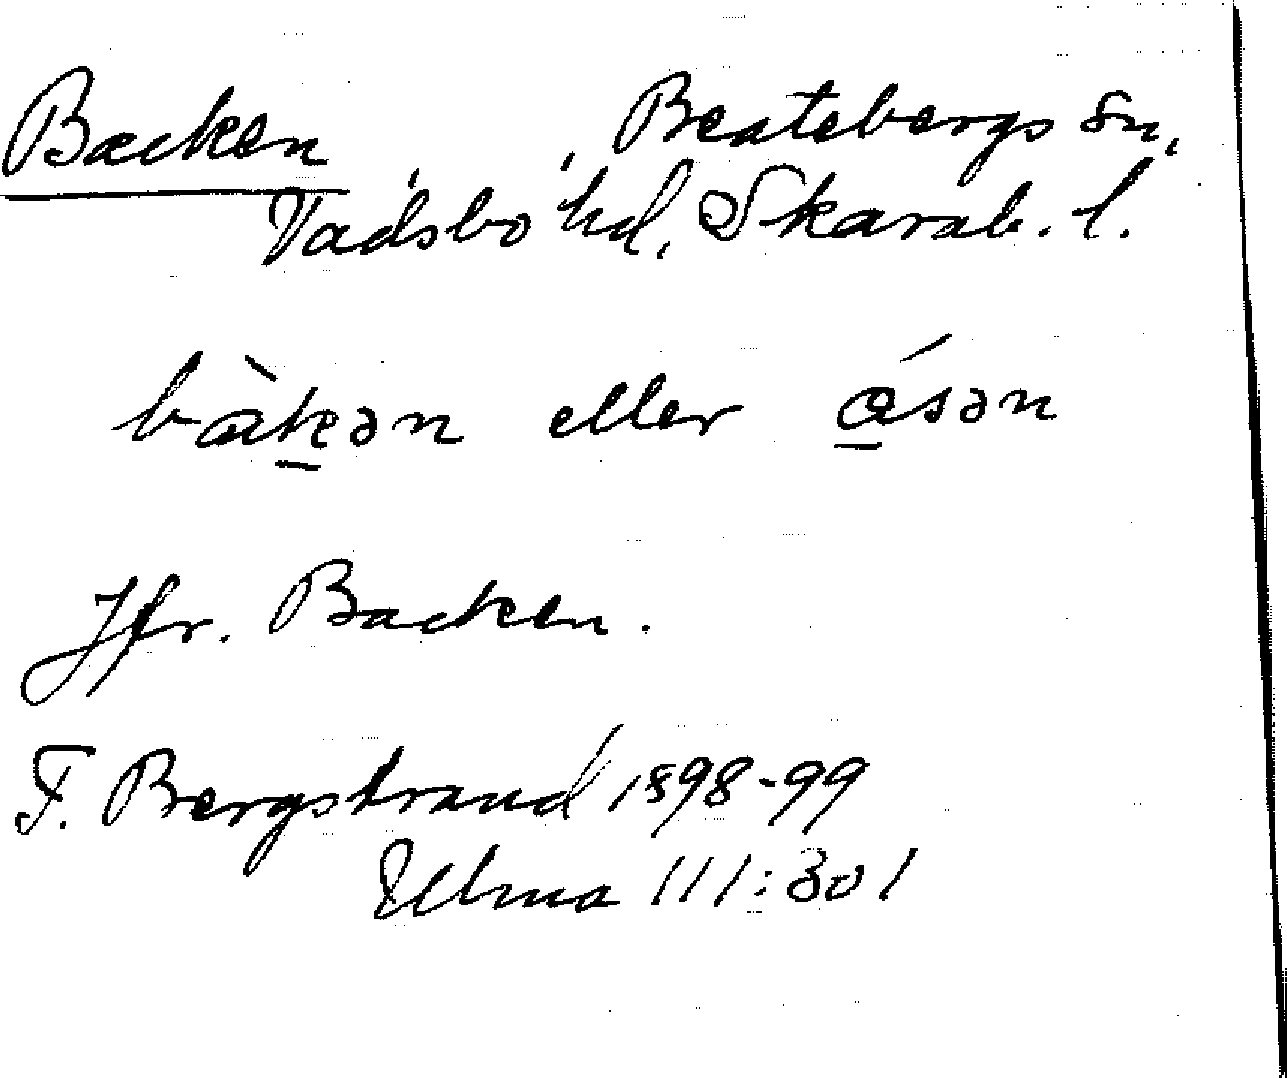 Backen, Beatebergs sn,
Vadsbo hd, Skarab. l.
bàkən eller ǻsən
Jfr. Backen.
F. Bergstrand 1898-99
Ulma 111:301